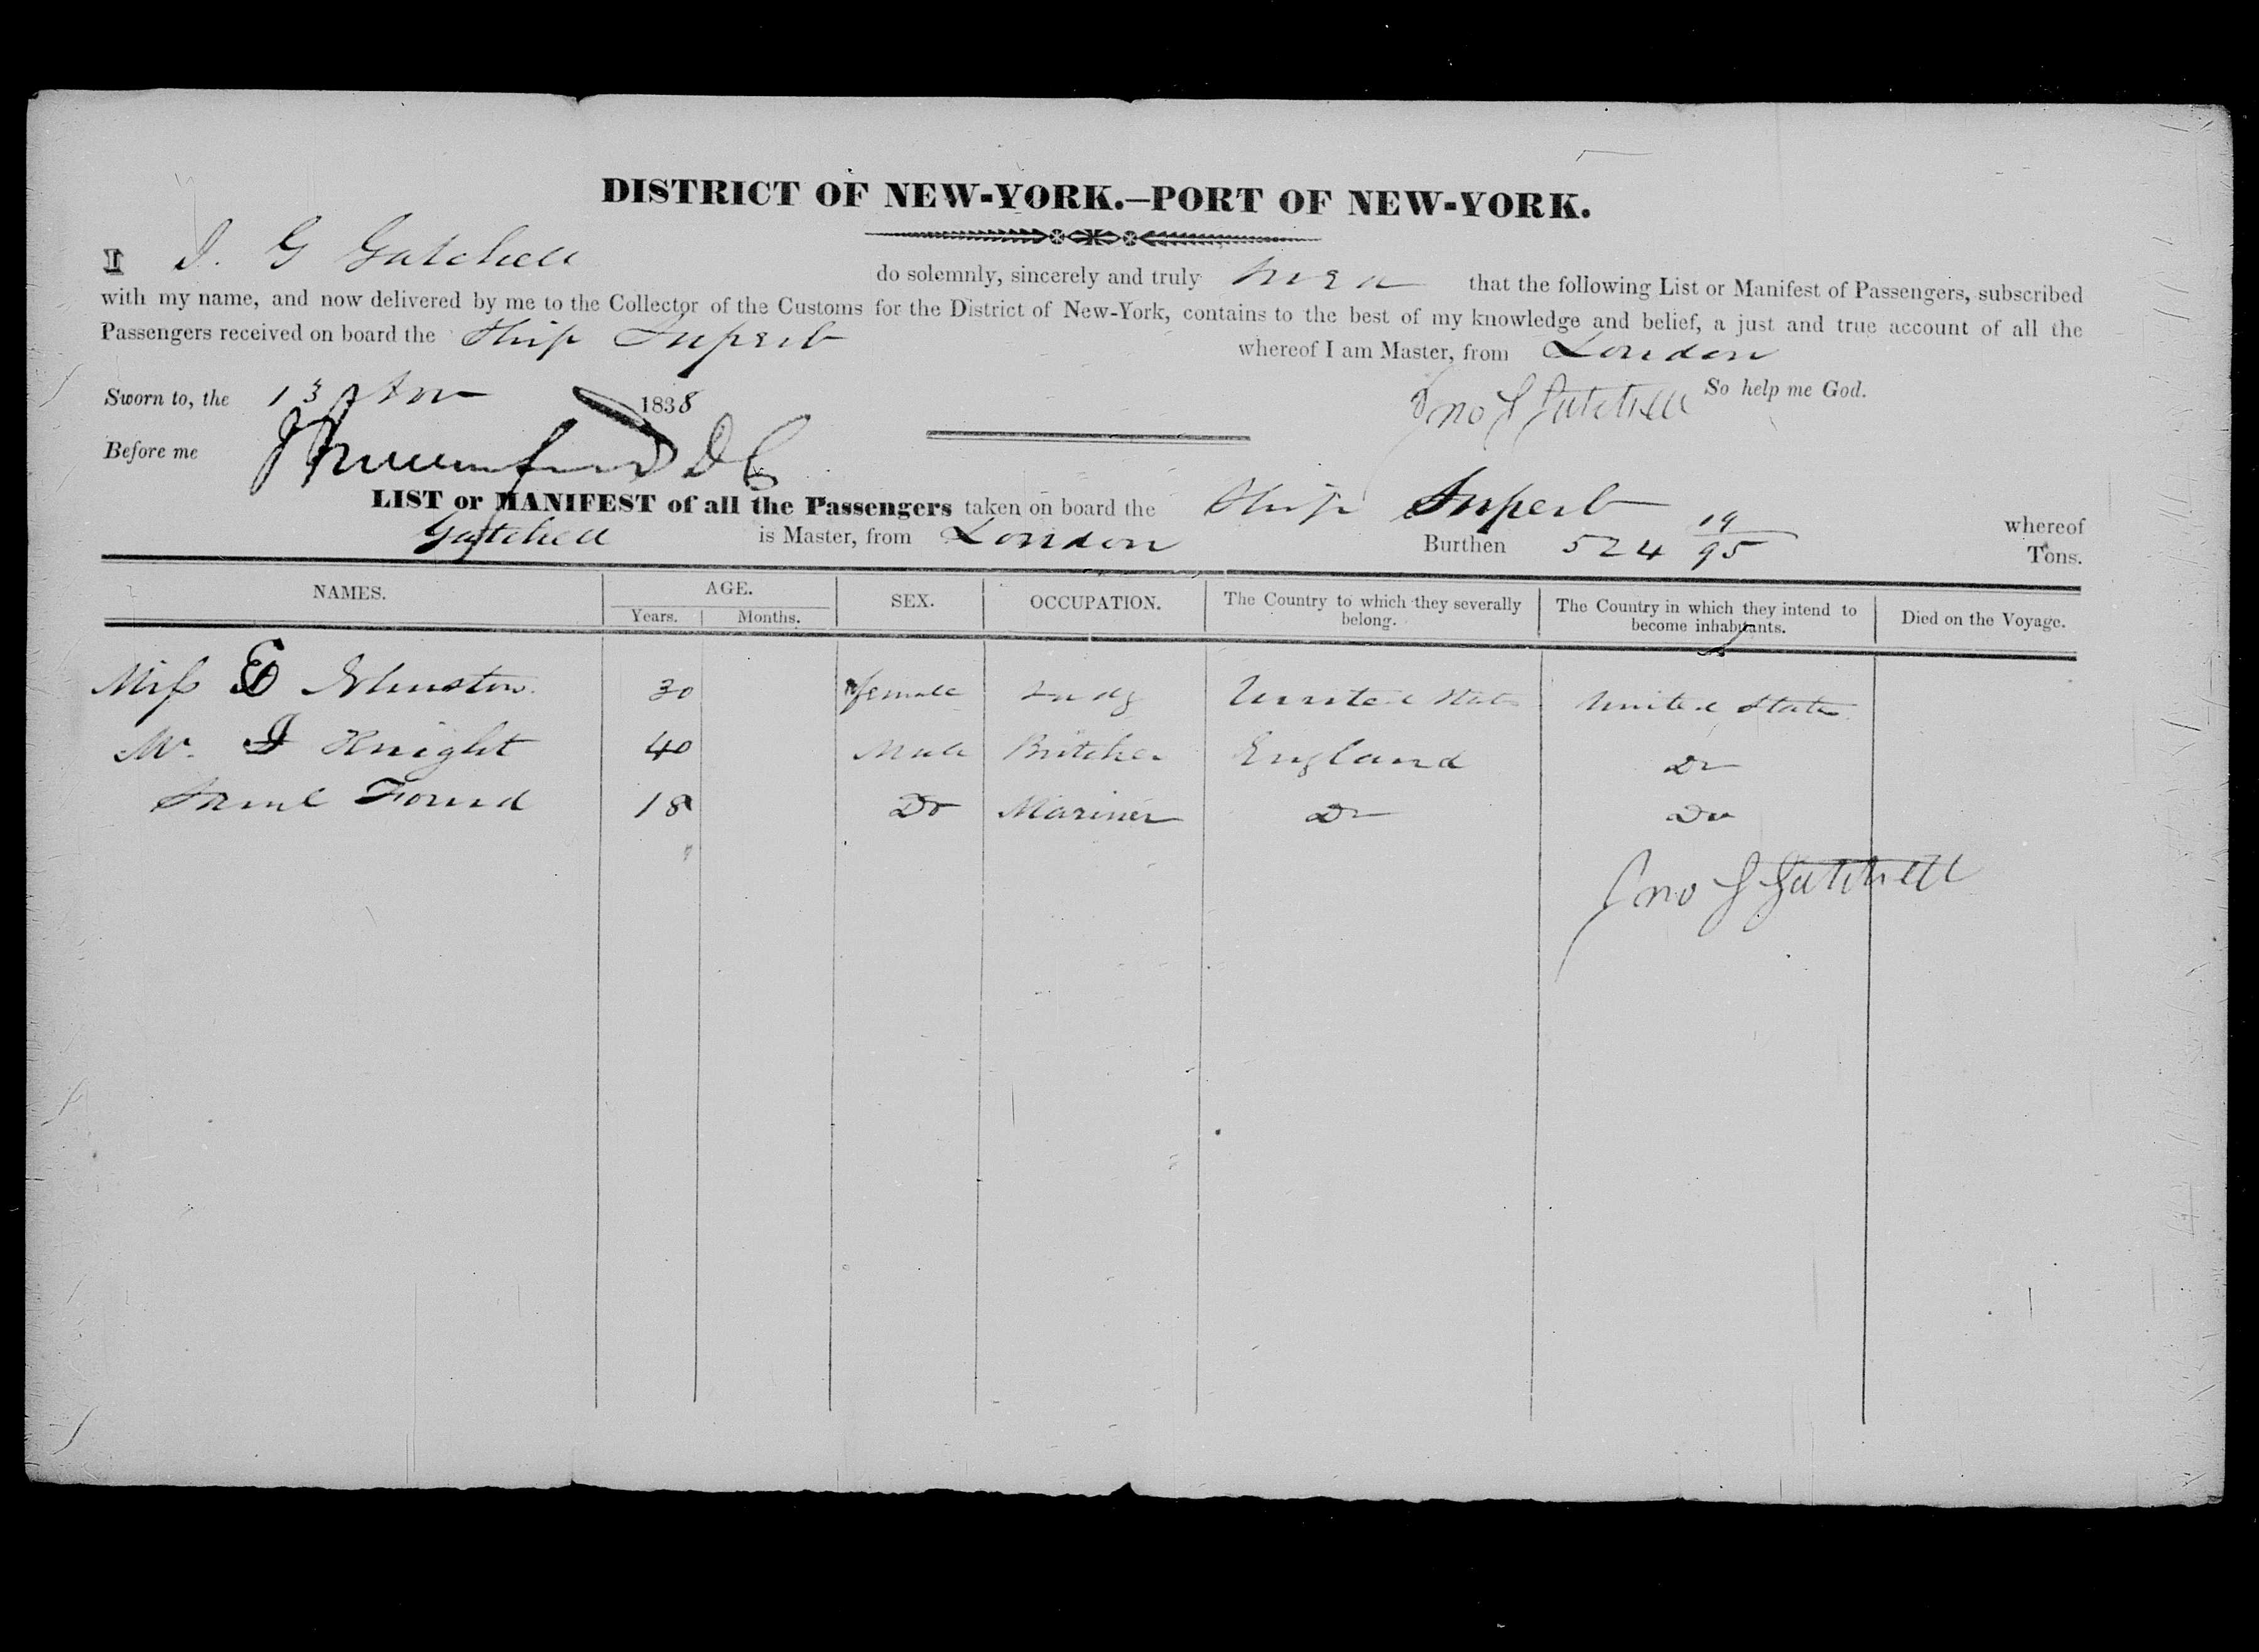 DISTRICT OF NEW-YORK.—PORT OF NEW-YORK.
I J. G Gatchell do solemnly, sincerely and truly swear that the following List or Manifest of Passengers, subscribed
with my name, and now delivered by me to the Collector of the Customs for the District of New-York, contains to the best of my knowledge and belief, a just and true account of all the
Passengers received on board the Ship Superb whereof I am Master, from London
Sworn to, the 13 Nov 1838 So help me God.
Jno G Gatchell
Before me D C
LIST or MANIFEST of all the Passengers taken on board the Ship Superb whereof
Gatchell is Master, from London Burthen 524 19/95 Tons.
NAMES. AGE. SEX. OCCUPATION. The Country to which they severally belong. The Country in which they intend to become inhabitants. Died on the Voyage.
Years. Months.
Miss E Johnston 30 female Lady United States United States
Mr. J Knight 40 Male Butcher England Do
Saml Found 18 Do Mariner Do Do
Jno G Gatchell